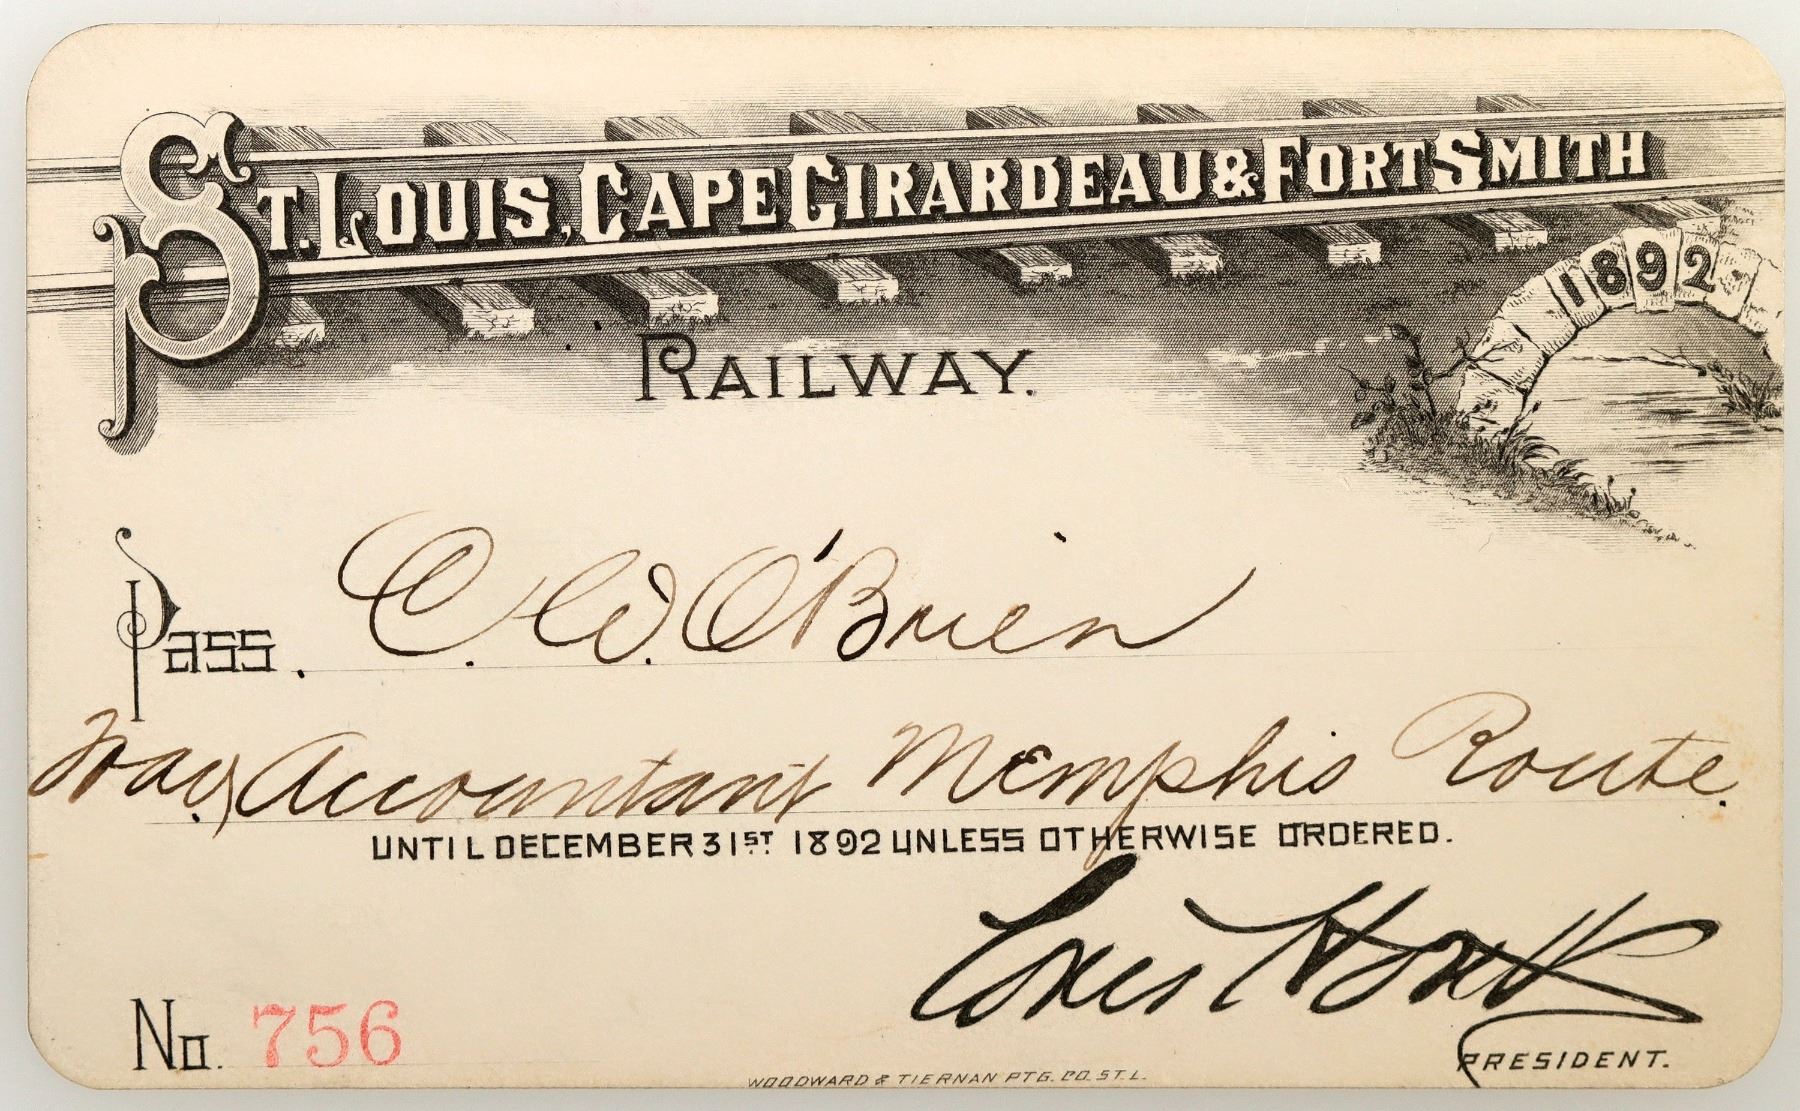 ST. LOUIS, CAPE GIRARDEAU & FORT SMITH
1892
RAILWAY.
Pass. C. W. O'Brien
Trav. Accountant Memphis Route.
UNTIL DECEMBER 31ST 1892 UNLESS OTHERWISE ORDERED.
Louis Houck
No. 756
PRESIDENT.
WOODWARD & TIERNAN PTG. CO. ST. L.